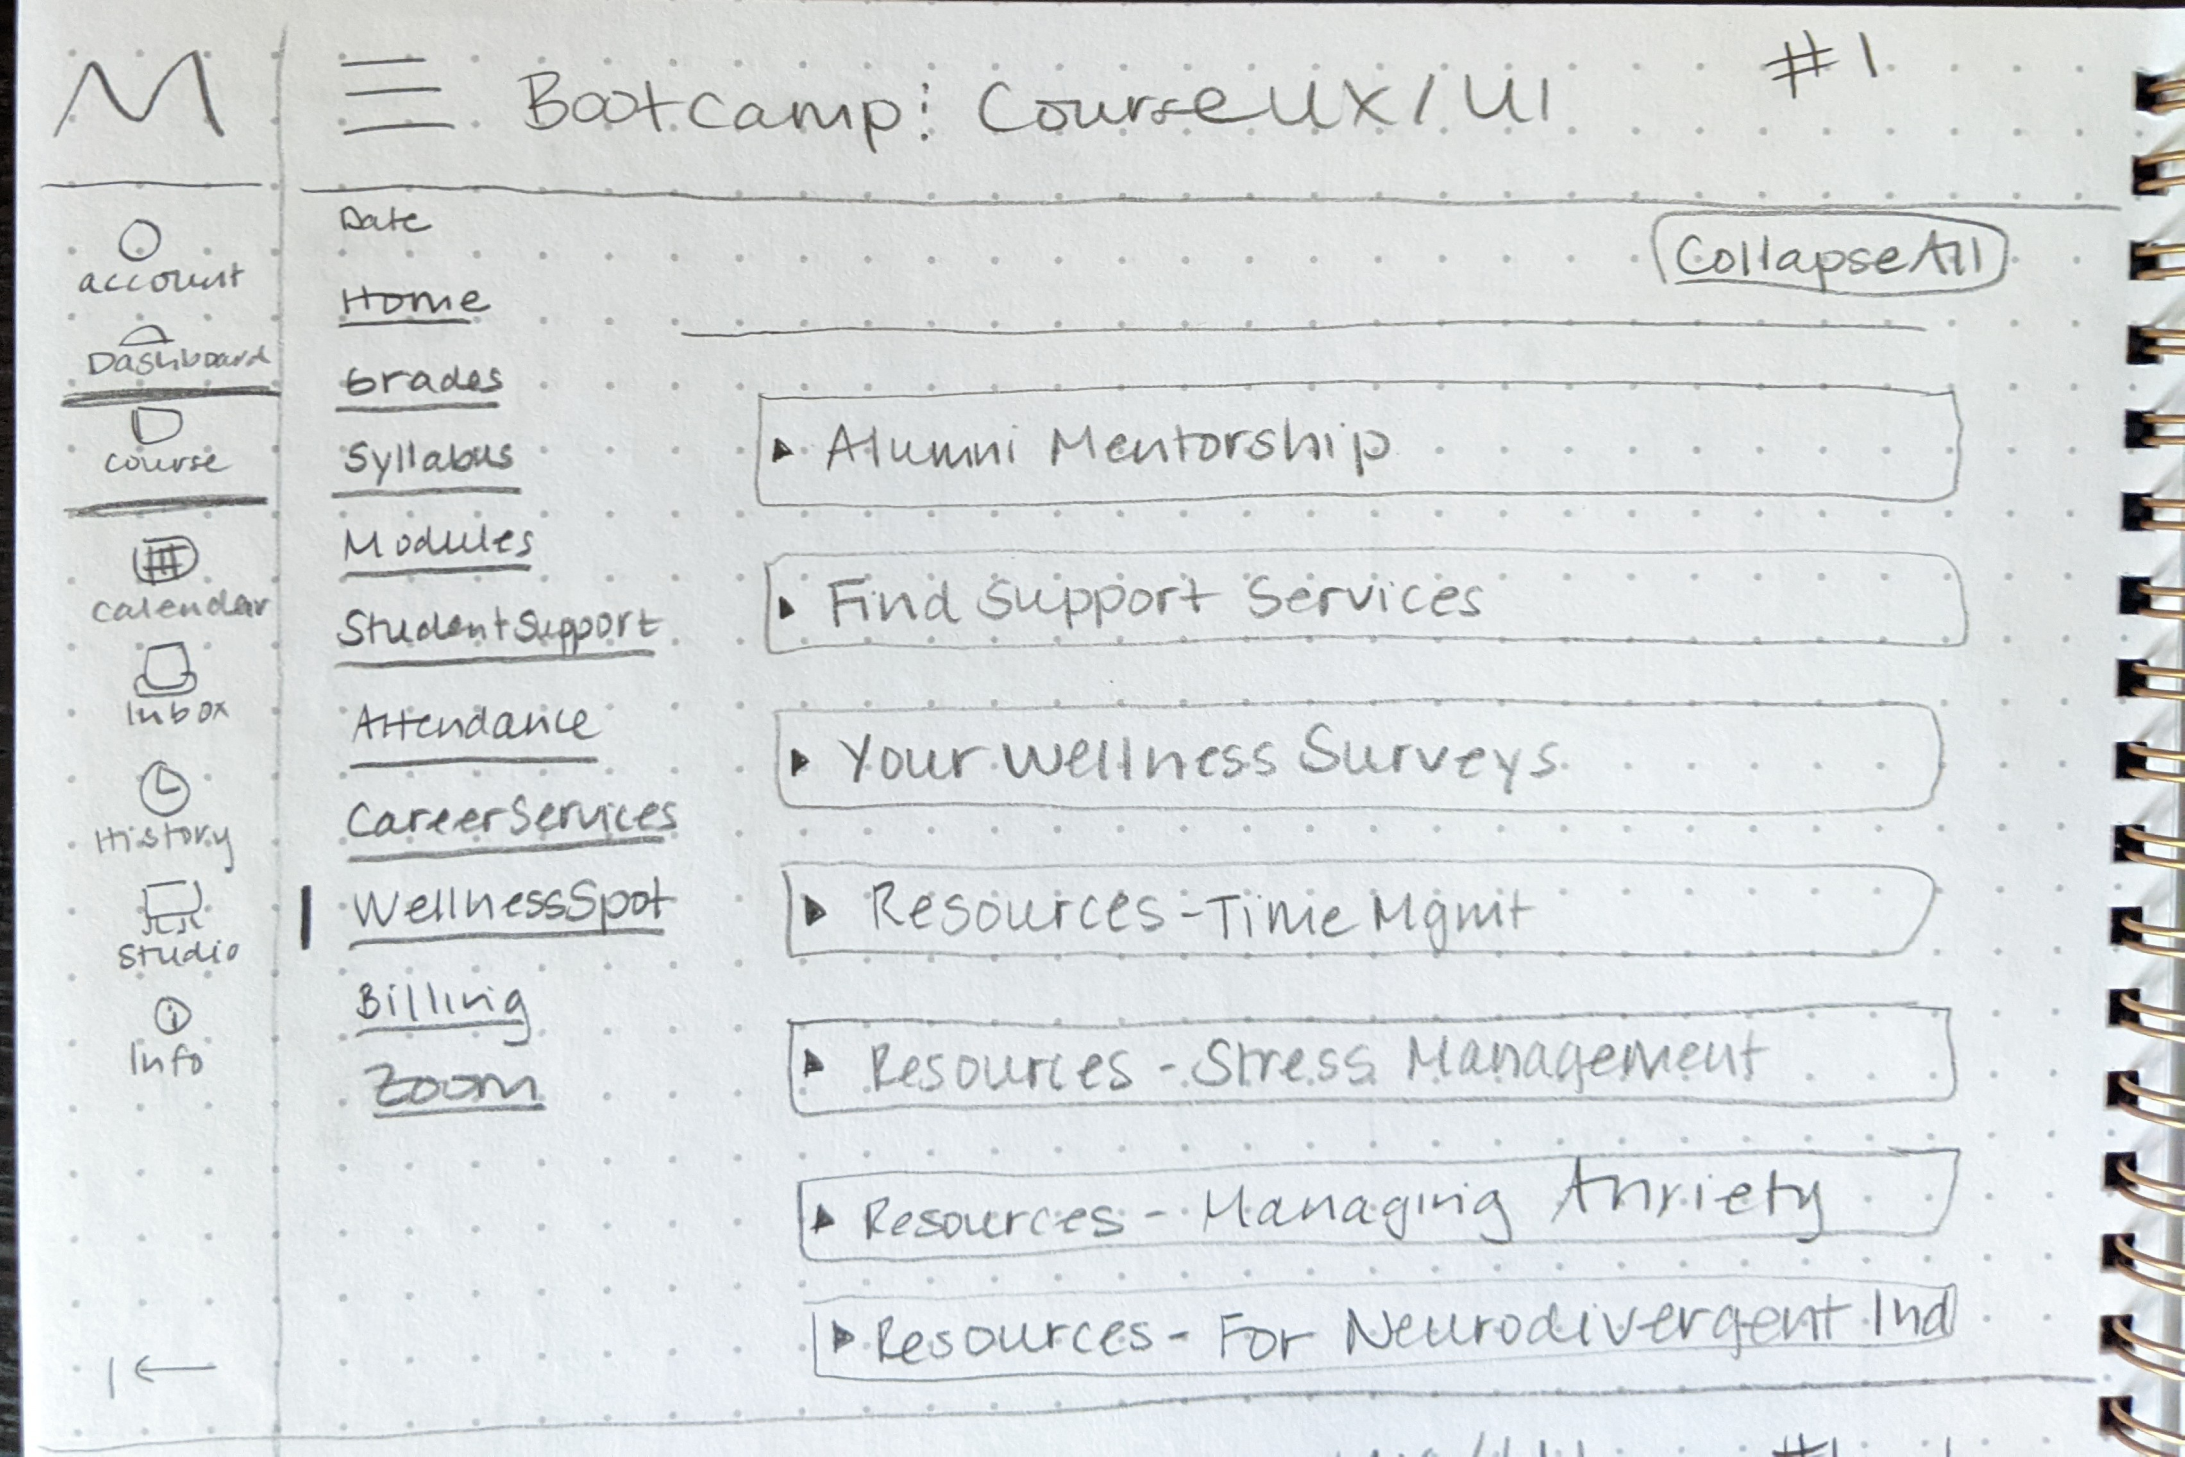 M
Bootcamp: Course UX/UI
#1
account
Dashboard
course
calendar
Inbox
History
Studio
Info
Date
Home
Grades
Syllabus
Modules
Student Support
Attendance
Career Services
Wellness Spot
Billing
Zoom
Collapse All
Alumni Mentorship
Find Support Services
Your Wellness Surveys
Resources - Time Mgmt
Resources - Stress Management
Resources - Managing Anxiety
Resources - For Neurodivergent Ind
#1